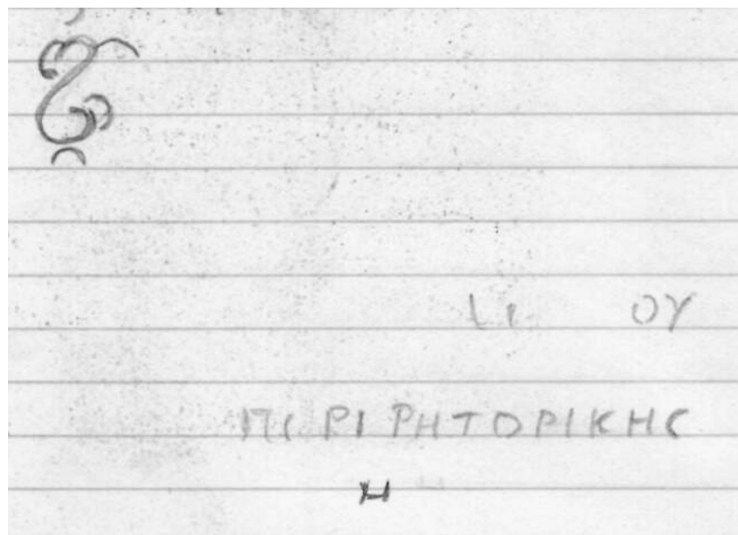 ΟΥ
ΠΕΡΙ ΡΗΤΟΡΙΚΗC
Η